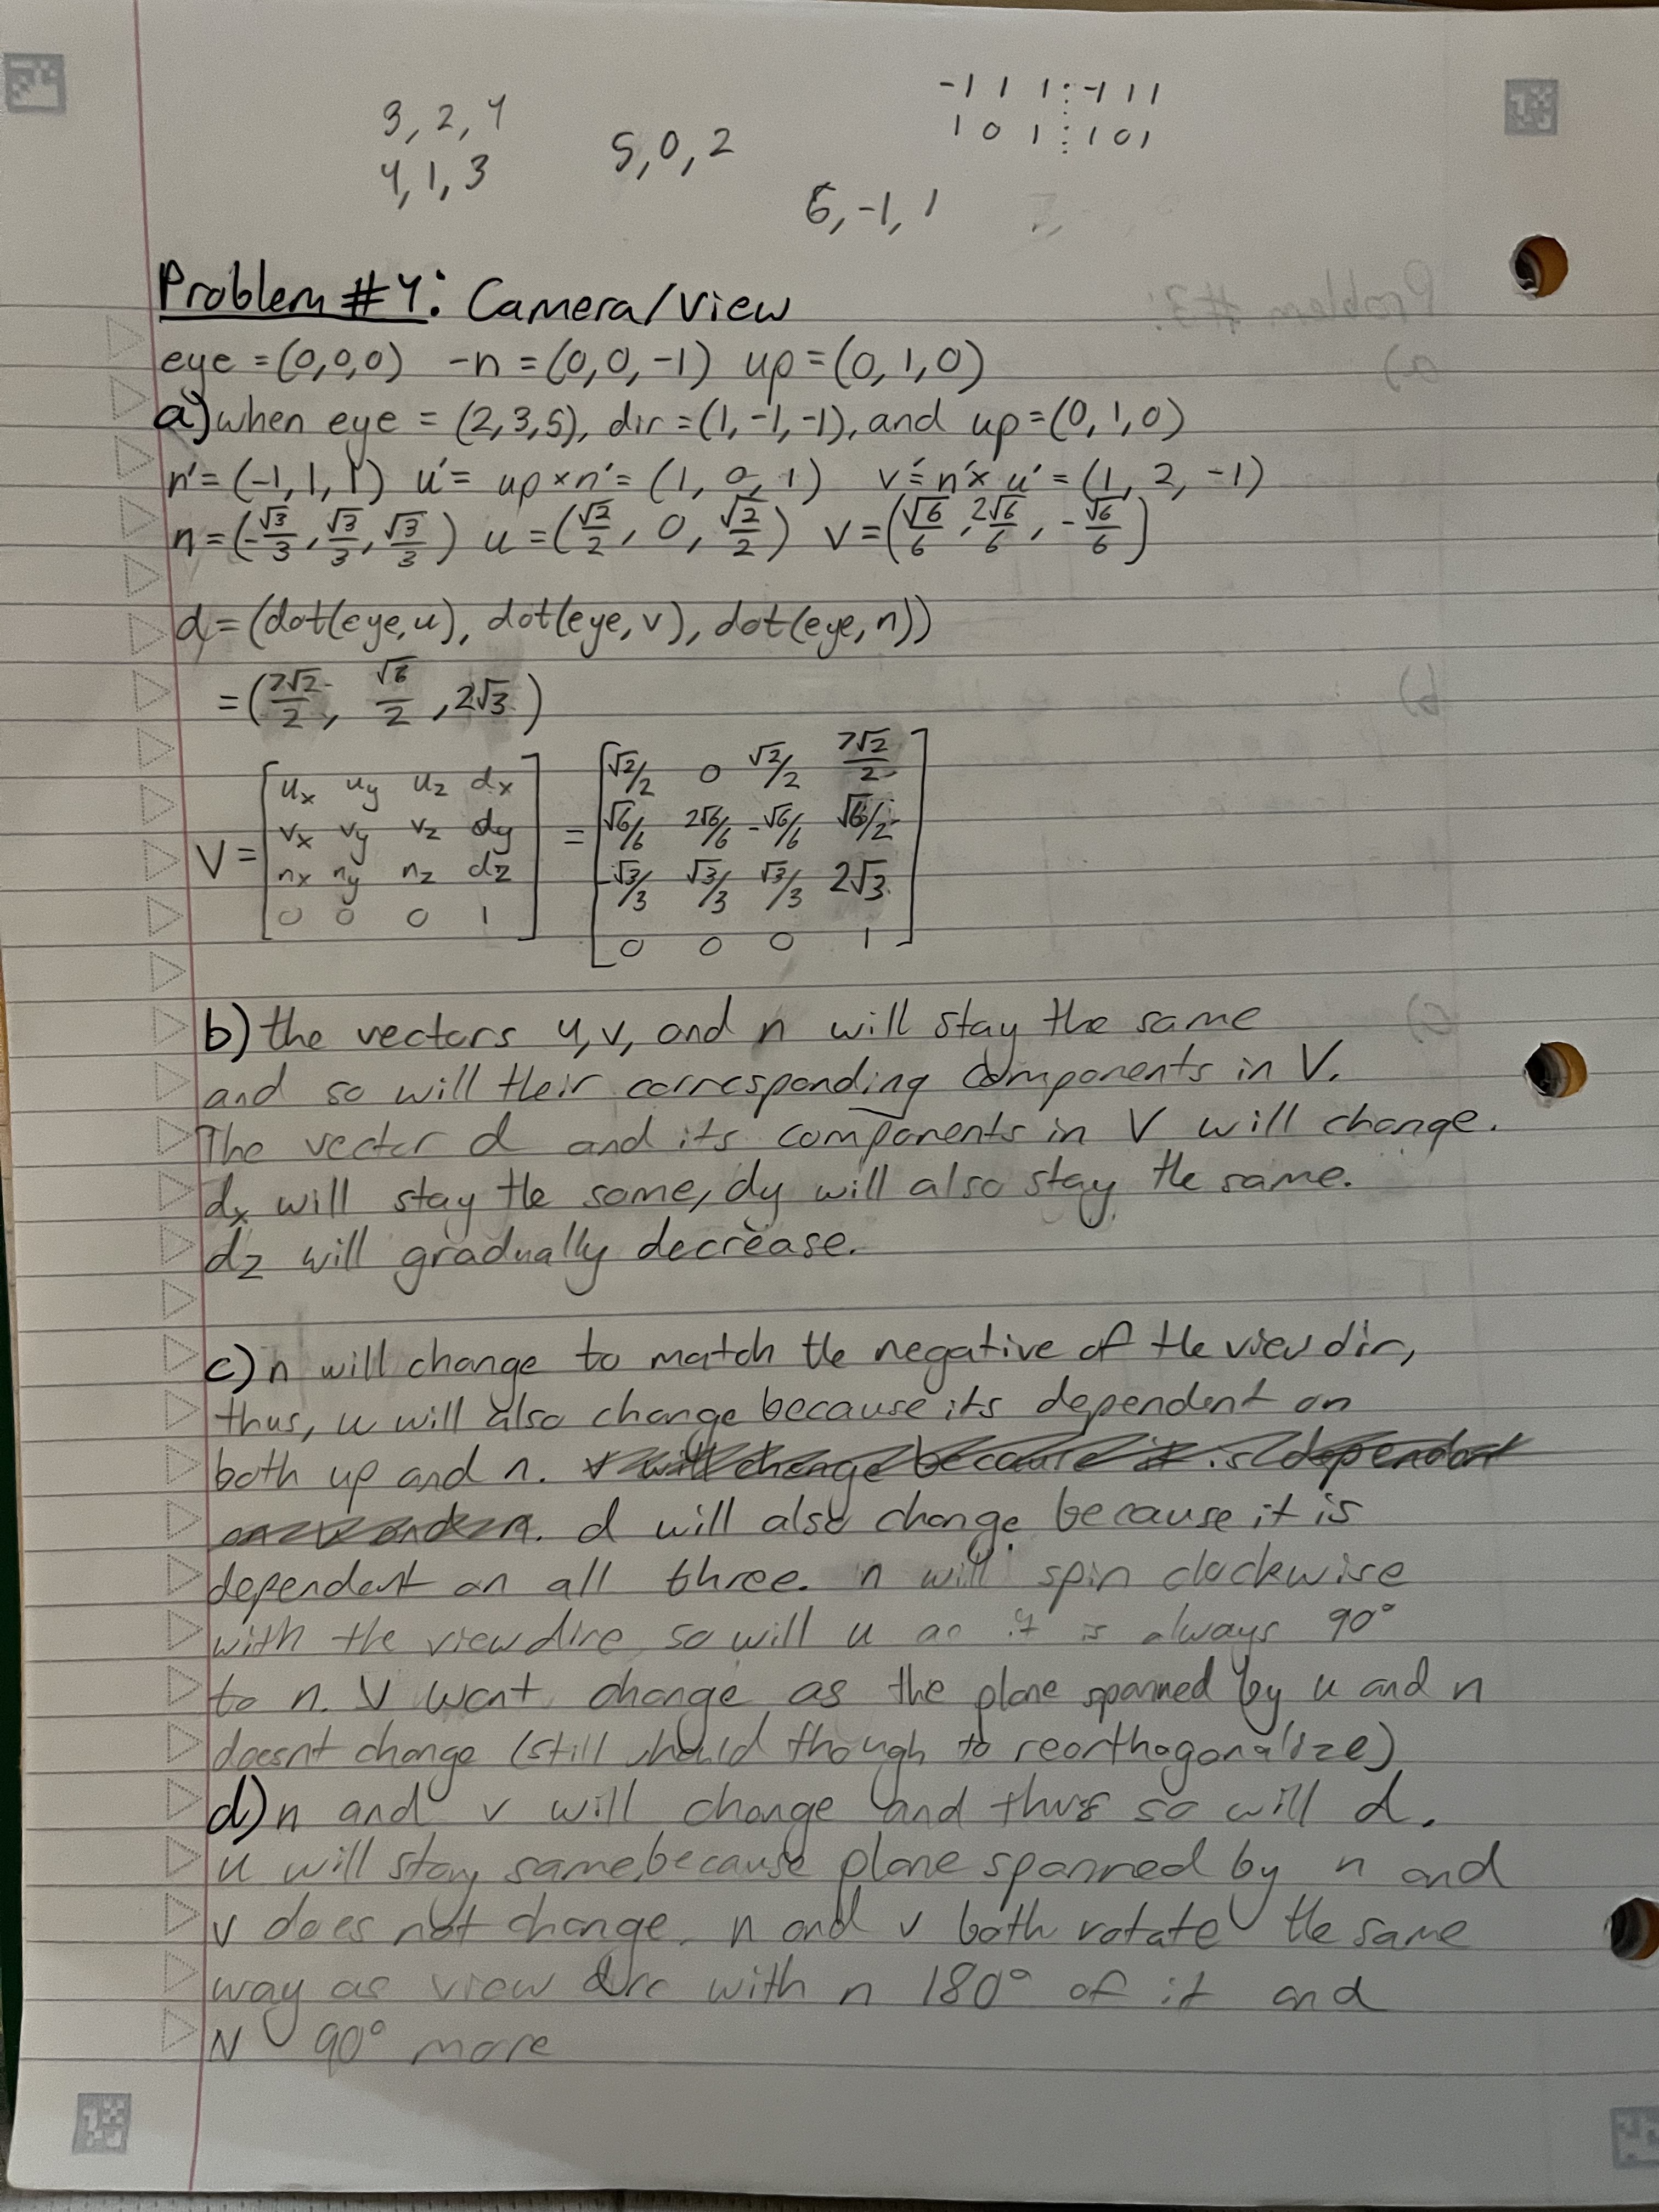 -1 1 1 ⋮ -1 1 1
1 0 1 ⋮ 1 0 1
3, 2, 4
4, 1, 3
5, 0, 2
6, -1, 1
Problem #4: Camera/View
eye = (0,0,0) -n = (0,0,-1) up = (0,1,0)
a) when eye = (2,3,5), dir = (1,-1,-1), and up = (0,1,0)
n' = (-1,1,1) u' = up × n' = (1, 0, 1) v' = n' × u' = (1, 2, -1)
n = (-√3/3, √3/3, √3/3) u = (√2/2, 0, √2/2) v = (√6/6, 2√6/6, -√6/6)
d = (dot(eye,u), dot(eye,v), dot(eye,n))
= (7√2/2, √6/2, 2√3)
V = [ux uy uz dx = [√2/2 0 √2/2 7√2/2
vx vy vz dy √6/6 2√6/6 -√6/6 √6/2
nx ny nz dz -√3/3 √3/3 √3/3 2√3
0 0 0 1] 0 0 0 1]
b) the vectors u, v, and n will stay the same
and so will their corresponding components in V.
The vector d and its components in V will change.
dx will stay the same, dy will also stay the same.
dz will gradually decrease.
c) n will change to match the negative of the view dir,
thus, u will also change because its dependent on
both up and n. v will change because it is dependent
on u and n. d will also change because it is
dependent on all three. n will spin clockwise
with the view dire so will u as it is always 90°
to n. V wont change as the plane spanned by u and n
doesnt change (still should though to reorthagonalize)
d) n and v will change and thus so will d.
u will stay same because plane spanned by n and
v does not change. n and v both rotate the same
way as view dire with n 180° of it and
N 90° more
Problem #3:
a)
b)
c)